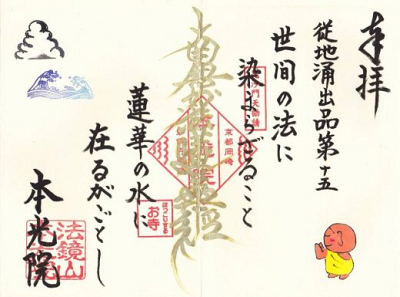 奉拝
従地涌出品第十五
世間の法に
染まらざること
南無妙法蓮華経
蓮華の水に
在るがごとし
本光院
京都岡崎
お寺
法鏡山